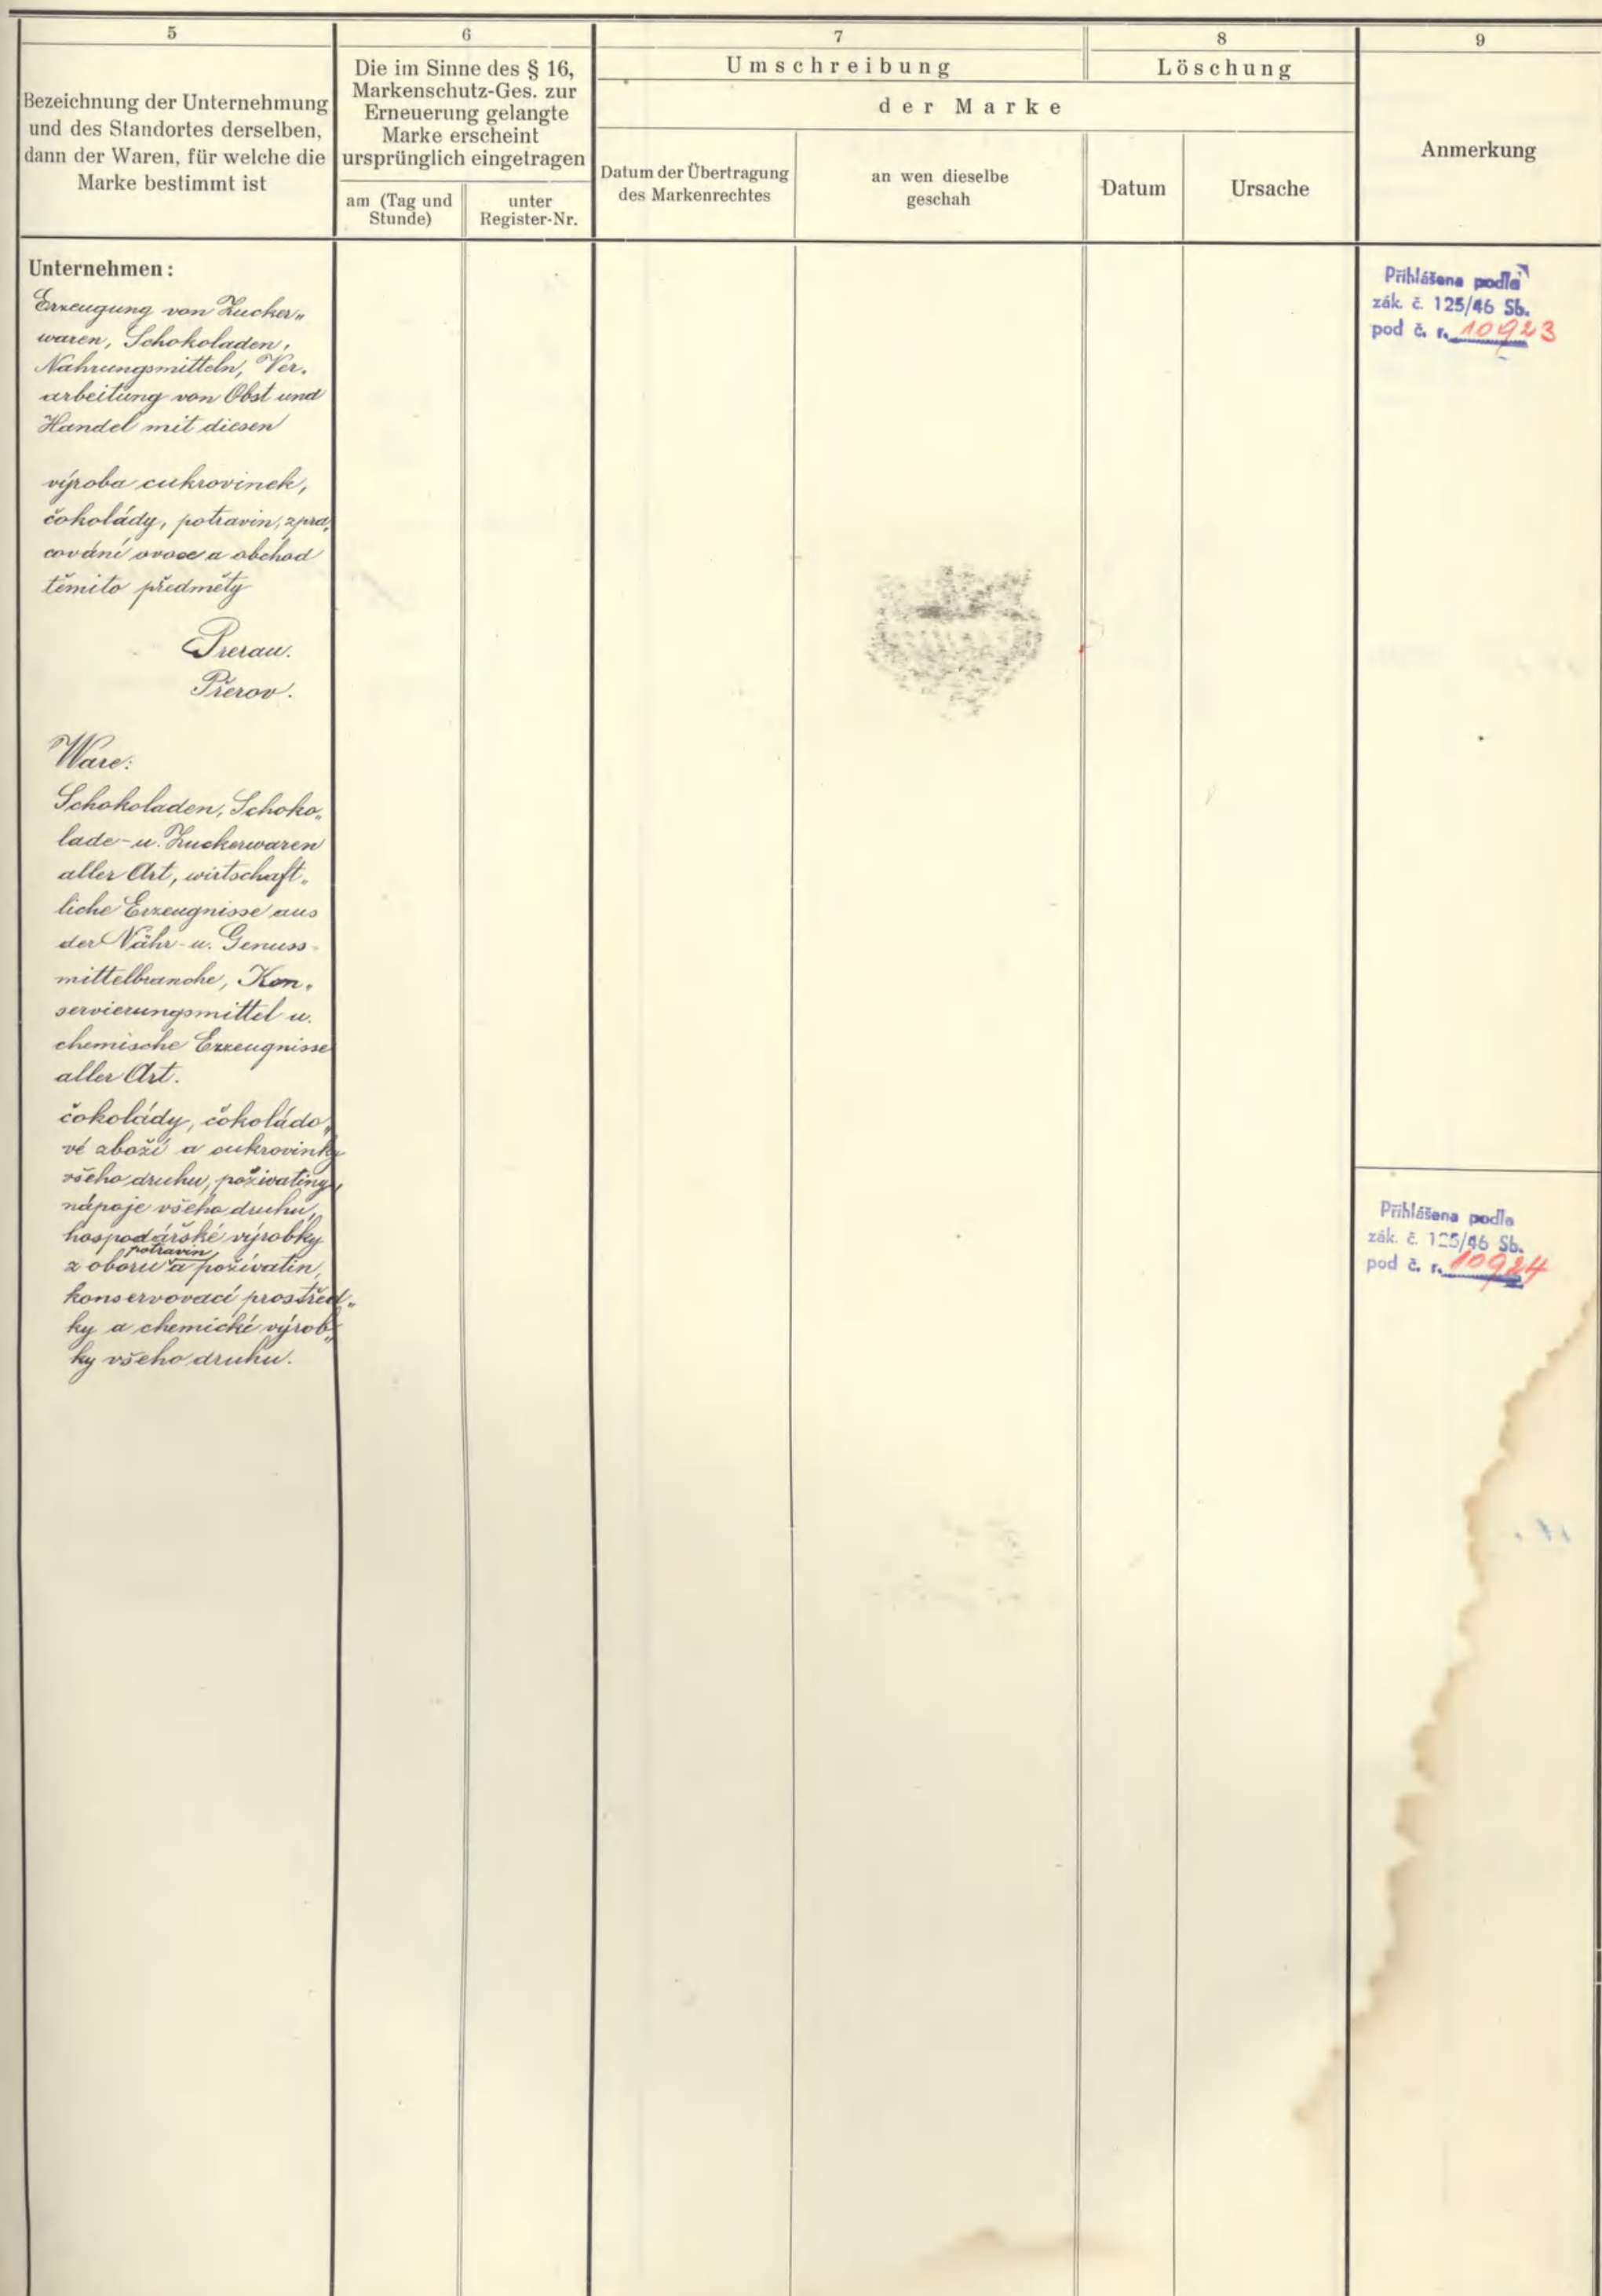 5
Bezeichnung der Unternehmung
und des Standortes derselben,
dann der Waren, für welche die
Marke bestimmt ist
6
Die im Sinne des § 16,
Markenschutz-Ges. zur
Erneuerung gelangte
Marke erscheint
ursprünglich eingetragen
am (Tag und
Stunde)
unter
Register-Nr.
7
Umschreibung
8
Löschung
der Marke
Datum der Übertragung
des Markenrechtes
an wen dieselbe
geschah
Datum
Ursache
9
Anmerkung
Unternehmen:
Erzeugung von Zucker„
waren, Schokoladen,
Nahrungsmitteln, Ver„
arbeitung von Obst und
Handel mit diesen
výroba cukrovinek,
čokolády, potravin, zpra„
cování ovoce a obchod
těmito předměty
Prerau.
Přerov.
Ware:
Schokoladen, Schoko„
lade- u. Zuckerwaren
aller Art, wirtschaft„
liche Erzeugnisse aus
der Nähr- u. Genuss-
mittelbranche, Kon„
servierungsmittel u.
chemische Erzeugnisse
aller Art.
čokolády, čokoládo„
vé zboží a cukrovinky
všeho druhu, poživatiny,
nápoje všeho druhu,
hospodářské výrobky
z oboru potravin a poživatin,
konservovací prostřed„
ky a chemické výrob„
ky všeho druhu.
Přihlášena podle
zák. č. 125/46 Sb.
pod č. r. 10923
Přihlášena podle
zák. č. 125/46 Sb.
pod č. r. 10924